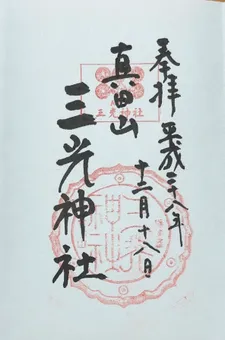 奉拝
平成二十八年
十二月十八日
真田山
三光神社
三光神社